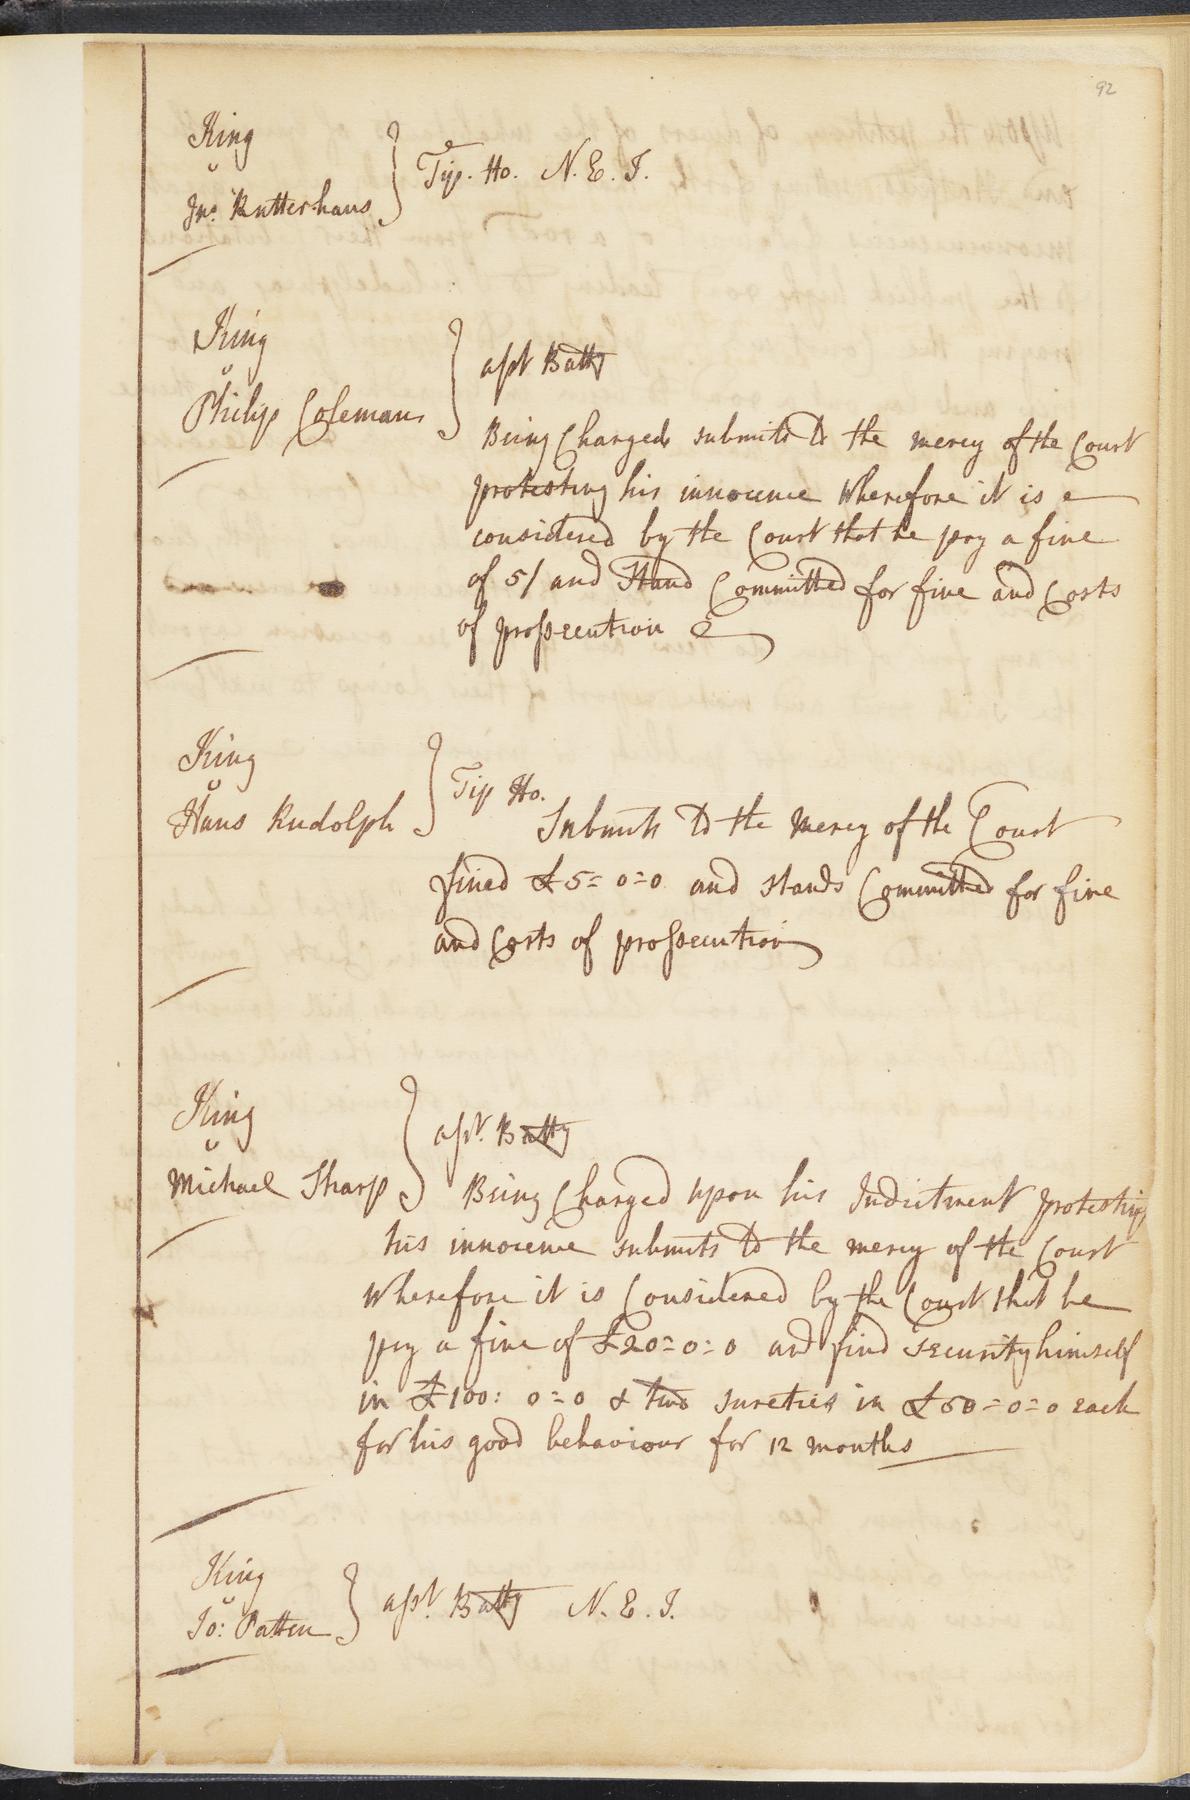 92
King
v
Jno. Rutterhaus } Tip. Ho. N. E. I.
King
v
Philip Colemans } asst Batty
Being Charged submits to the mercy of the Court
protesting his innocence Wherefore it is
considered by the Court that he pay a fine
of 5/ and Stand Committed for fine and Costs
of prossecution
King
v
Hans Rudolph } Tip Ho.
Submits to the Mercy of the Court
fined £5=0=0 and stands Committed for fine
and Costs of prossecution
King
v
Michael Sharp } asst. Batty
Being Charged upon his Indictment protesting
his innocence submits to the mercy of the Court
Wherefore it is Considered by the Court that he
pay a fine of £20=0=0 and find security himself
in £100:0=0 & two sureties in £50=0=0 each
for his good behaviour for 12 months
King
v
Jo: Patten } asst. Batty N. E. I.